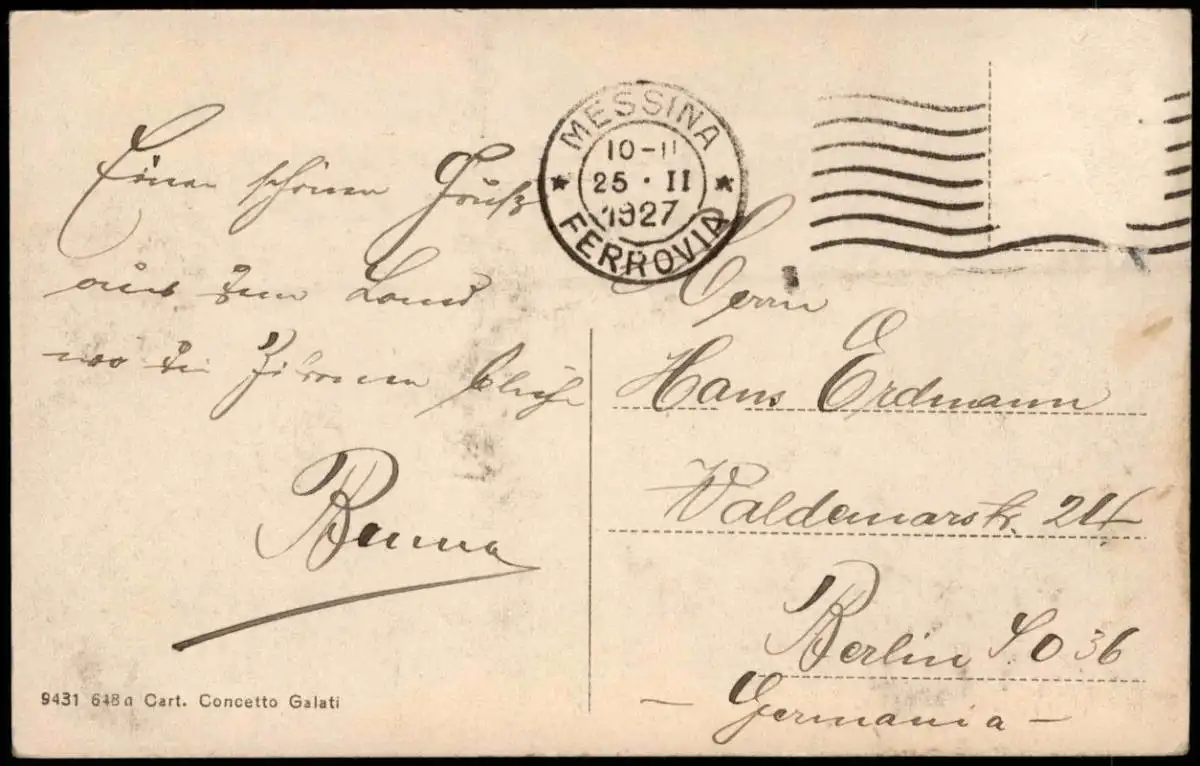 Einen schönen Gruß
aus dem Land
wo die Zitronen blühn
Benna
9431 648a Cart. Concetto Galati
MESSINA
10-11
25 · II
1927
FERROVIA
Herrn
Hans Erdmann
Waldemarstr. 24
Berlin SO 36
- Germania -